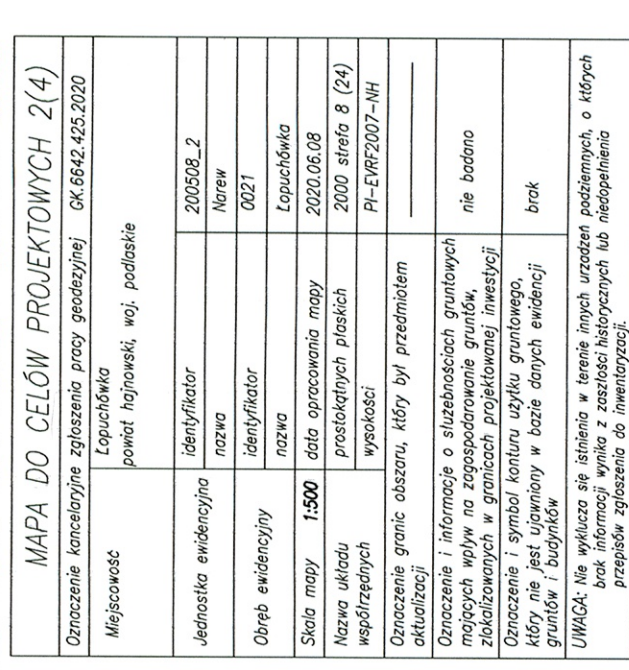 MAPA DO CELÓW PROJEKTOWYCH 2(4)
Oznaczenie kancelaryjne zgłoszenia pracy geodezyjnej GK.6642.425.2020
Miejscowość
Łopuchówka
powiat hajnowski, woj. podlaskie
Jednostka ewidencyjna
identyfikator 200508_2
nazwa Narew
Obręb ewidencyjny
identyfikator 0021
nazwa Łopuchówka
Skala mapy 1:500 data opracowania mapy 2020.06.08
Nazwa układu
współrzędnych
prostokątnych płaskich 2000 strefa 8 (24)
wysokości Pl-EVRF2007-NH
Oznaczenie granic obszaru, który był przedmiotem
aktualizacji
Oznaczenie i informacje o służebnościach gruntowych
mających wpływ na zagospodarowanie gruntów,
zlokalizowanych w granicach projektowanej inwestycji
nie badano
Oznaczenie i symbol konturu użytku gruntowego,
który nie jest ujawniony w bazie danych ewidencji
gruntów i budynków
brak
UWAGA: Nie wyklucza się istnienia w terenie innych urządzeń podziemnych, o których
brak informacji wynika z zaszłości historycznych lub niedopełnienia
przepisów zgłoszenia do inwentaryzacji.